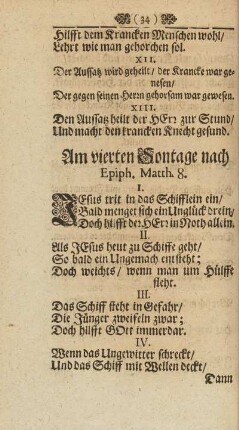 (34)
Hilfft dem Krancken Menschen wohl/
Lehrt wie man gehorchen sol.
XII.
Der Aussatz wird geheilt/ der Krancke war ge-
nesen/
Der gegen seinen Herrn gehorsam war gewesen.
XIII.
Den Aussatz heilt der HErr zur Stund/
Und macht den krancken Knecht gesund.
Am vierten Sontage nach
Epiph. Matth. 8.
I.
JEsus trit in das Schifflein ein/
Bald menget sich ein Unglück drein/
Doch hilfft der HErr in Noth allein.
II.
Als JEsus heut zu Schiffe geht/
So bald ein Ungemach entsteht;
Doch weichts/ wenn man um Hülffe
fleht.
III.
Das Schiff steht in Gefahr/
Die Jünger zweifeln zwar;
Doch hilfft GOtt immerdar.
IV.
Wenn das Ungewitter schreckt/
Und das Schiff mit Wellen deckt/
Dann